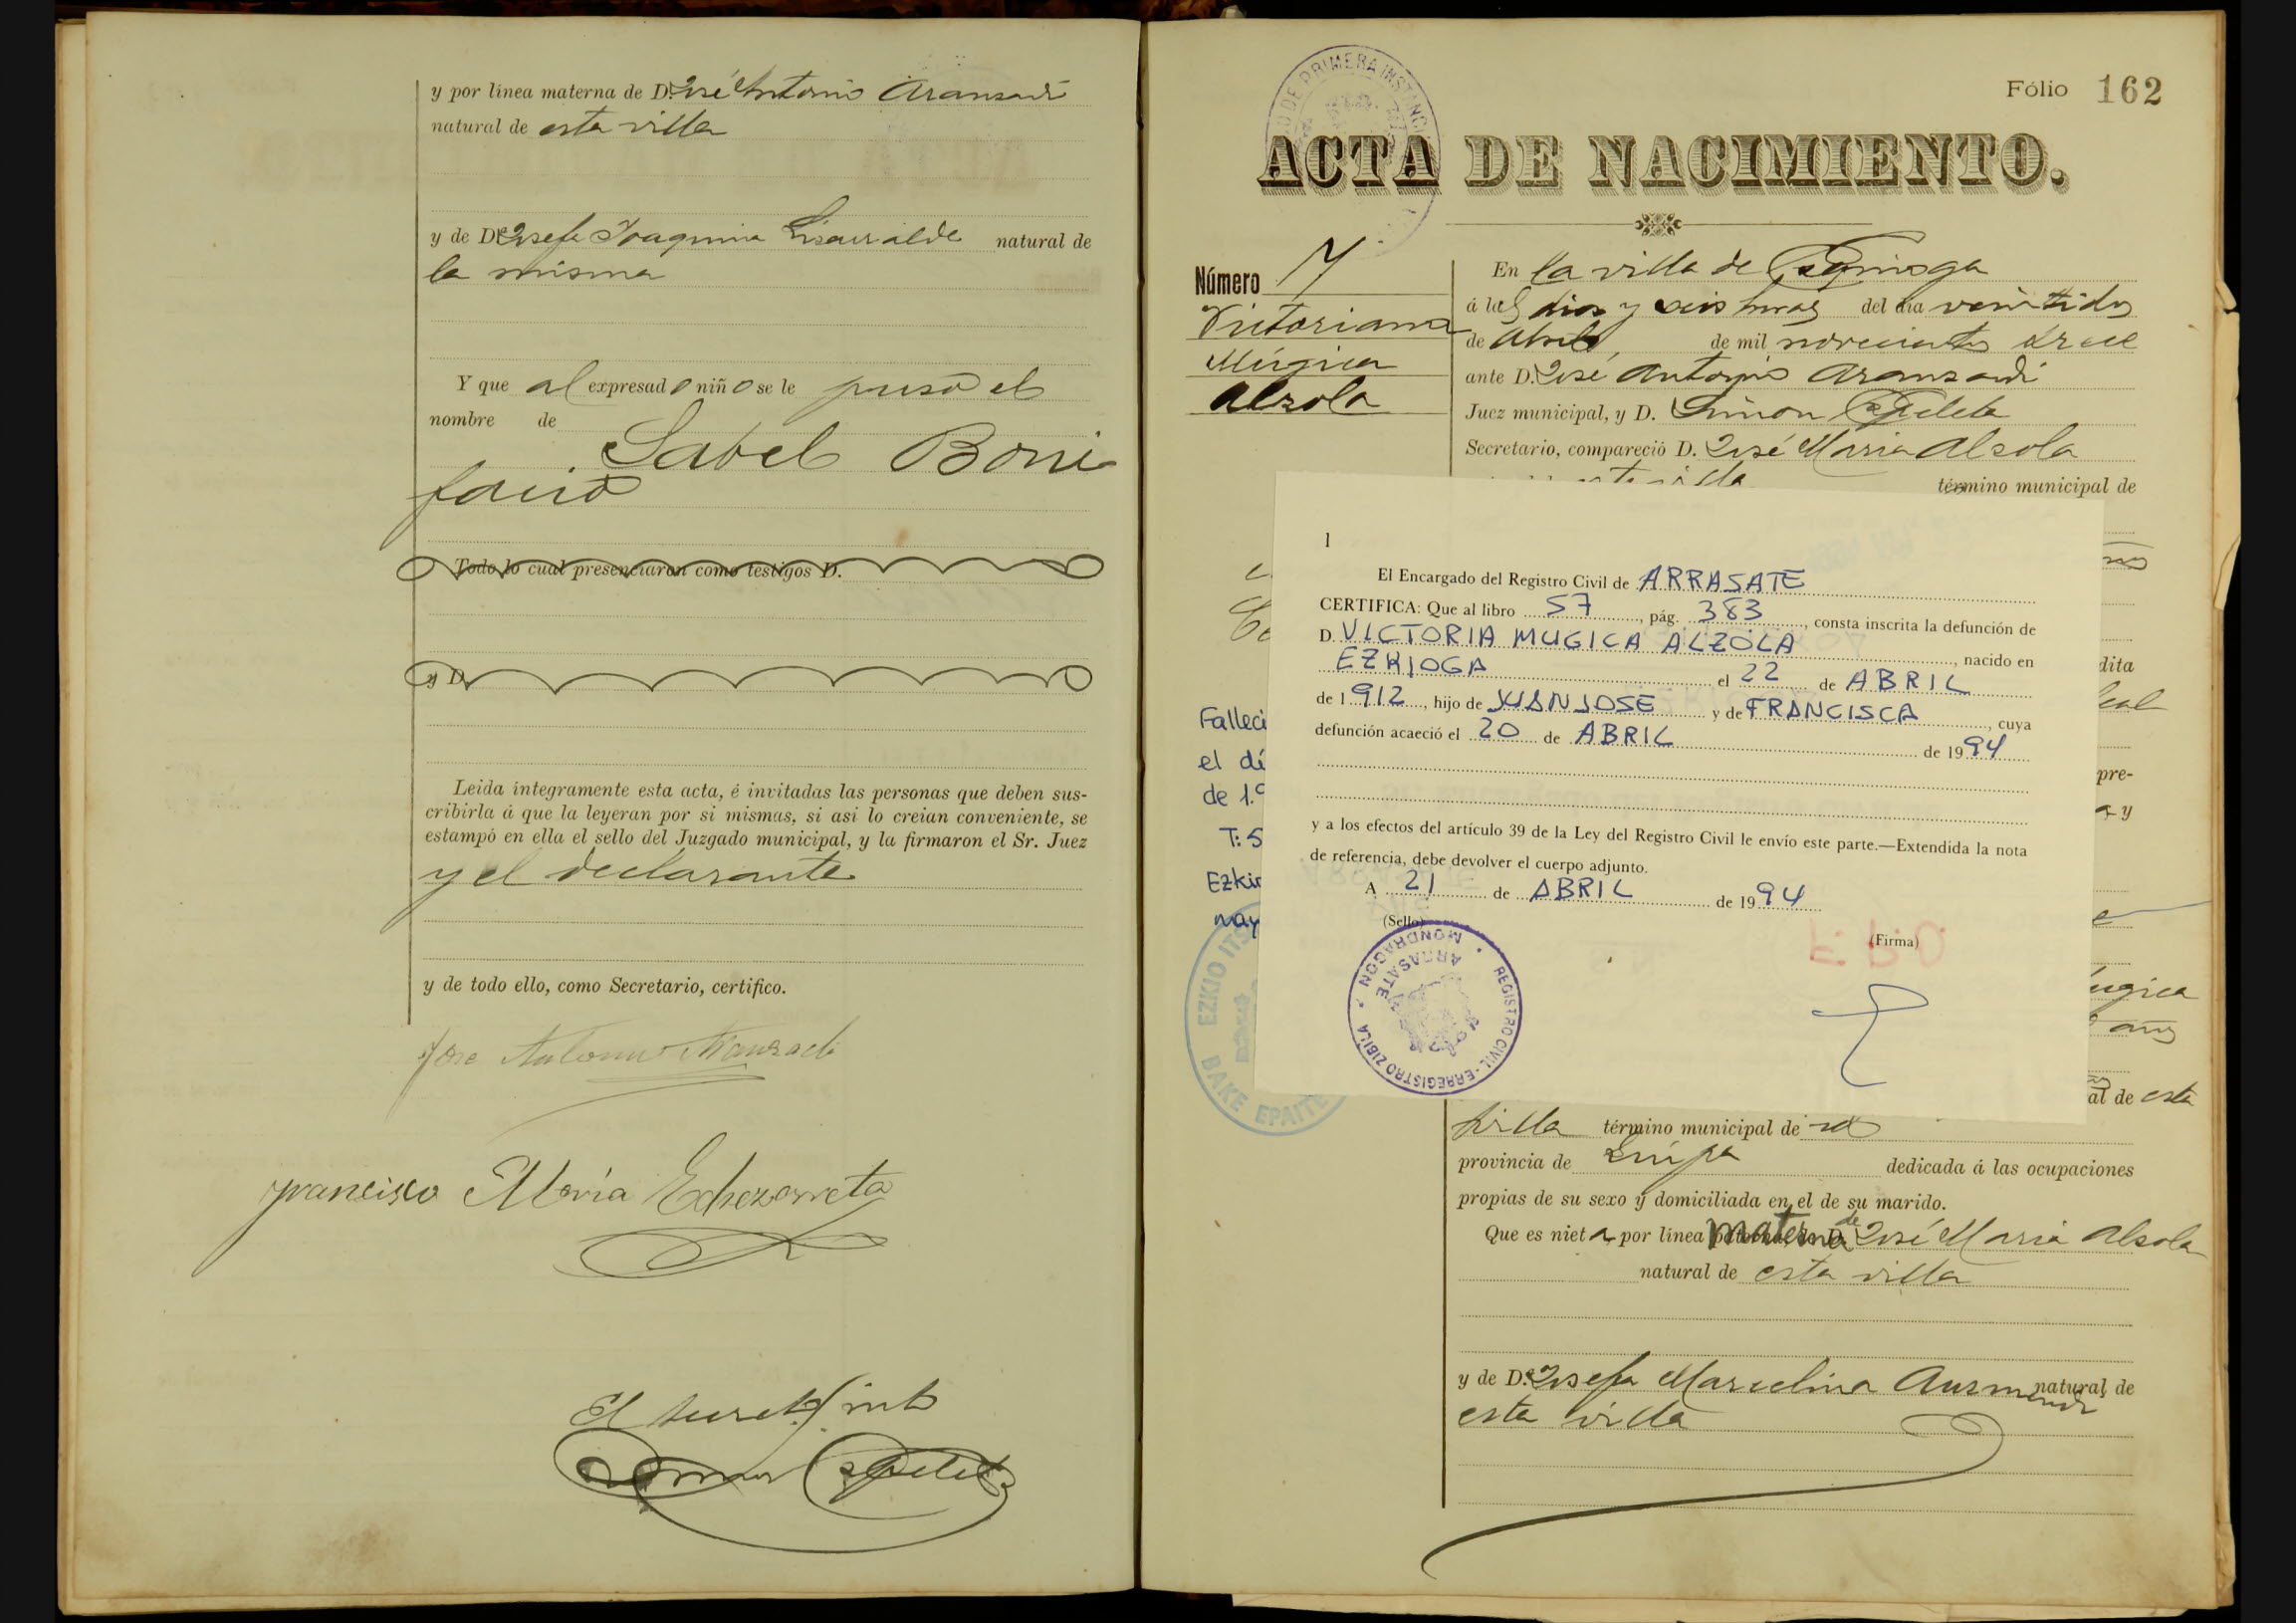 y por línea materna de D. José Antonio Aransadi
natural de esta villa
y de Dª Josefa Joaquina Lisarralde natural de
la misma
Y que al expresado niño se le puso el
nombre de
Sabel Boni
facio
Todo lo cual presenciaron como testigos D.
y D.
Leida íntegramente esta acta, é invitadas las personas que deben sus-
cribirla á que la leyeran por si mismas, si asi lo creian conveniente, se
estampó en ella el sello del Juzgado municipal, y la firmaron el Sr. Juez
y el declarante
y de todo ello, como Secretario, certifico.
Jose Antonio Aranzadi
Francisco María Echezarreta
El
Simon
Fólio 162
DE PRIMERA INSTANCI
ACTA DE NACIMIENTO.
Número 7
Victoriana
Múgica
Alzola
En la villa de Ezquioga
á las dies y seis horas del dia veintidos
de Abril, de mil novecientos
ante D. José Antonio Aransadi
Juez municipal, y D. Simon
Secretario, compareció D. José Maria Alzola
esta villa término municipal de
dita
pre-
a y
Falleci
el dí
de 1.9
T: 5
Ezkio
may
EZKIO ITS
BAKE EPAITE
1
El Encargado del Registro Civil de ARRASATE
CERTIFICA: Que al libro 57, pág. 383, consta inscrita la defunción de
D. VICTORIA MUGICA ALZOLA
EZKIOGA, nacido en
el 22 de ABRIL
de 1912, hijo de JUAN JOSE y de FRANCISCA, cuya
defunción acaeció el 20 de ABRIL de 1994
y a los efectos del artículo 39 de la Ley del Registro Civil le envío este parte.—Extendida la nota
de referencia, debe devolver el cuerpo adjunto.
A 21 de ABRIL de 1994
(Sello)
(Firma)
REGISTRO CIVIL - ERREGISTRO ZIBILA
MONDRAGON
ARRASATE
ugica
años
al de esta
villa término municipal de id
provincia de Guipa dedicada á las ocupaciones
propias de su sexo y domiciliada en el de su marido.
Que es nieta por línea materna de José Maria Alzola
natural de esta villa
y de Dª Josefa Marcelina Ausmendi natural de
esta villa